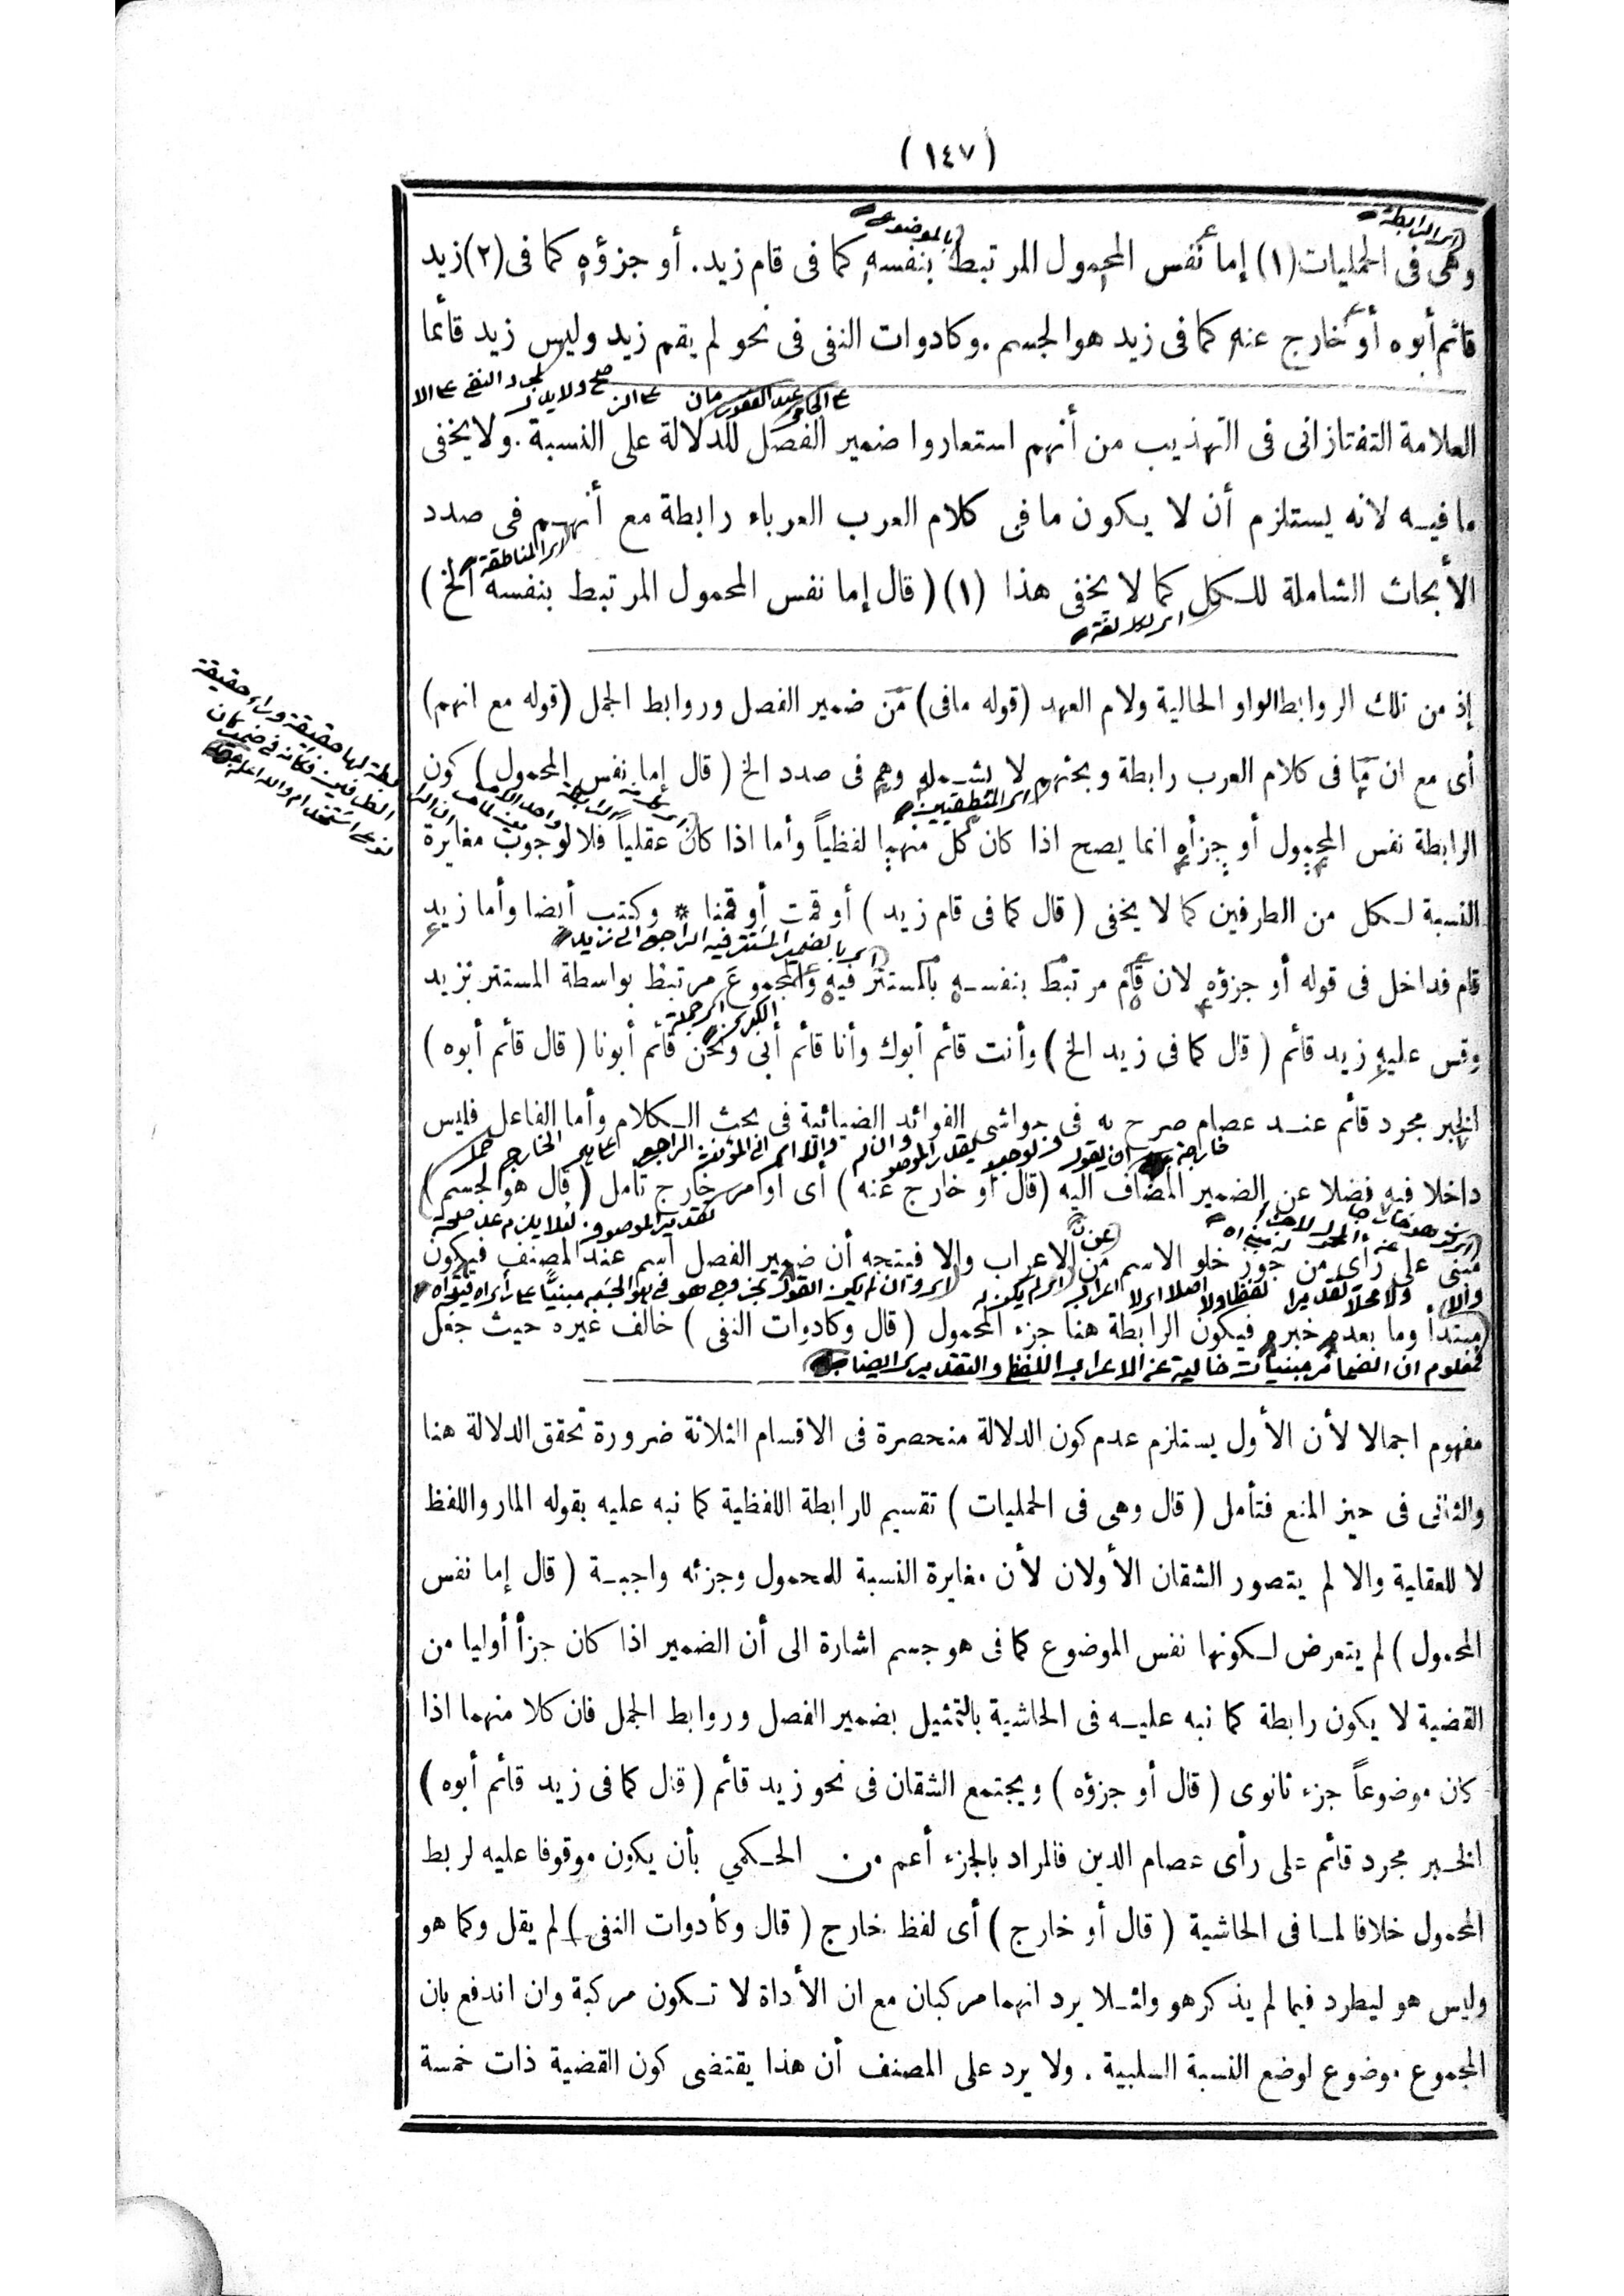 (١٤٧)
وهى فى الحمليات (١) إما نفس المحمول المرتبط بنفسه كما فى قام زيد. أو جزؤه كما فى (٢) زيد
قائم أبوه أو خارج عنه كما فى زيد هو الجسم. وكادوات النفى فى نحو لم يقم زيد وليس زيد قائما
العلامة التفتازانى فى التهذيب من أنهم استعاروا ضمير الفصل للدلالة على النسبة. ولا يخفى
ما فيه لانه يستلزم أن لا يكون ما فى كلام العرب العرباء رابطة مع أنهم فى صدد
المناطقة
الأبحاث الشاملة للكل كما لا يخفى هذا (١) (قال إما نفس المحمول المرتبط بنفسه الخ)
إذ من تلك الروابط الواو الحالية ولام العهد (قوله ما فى) من ضمير الفصل وروابط الجمل (قوله مع انهم)
أى مع ان ما فى كلام العرب رابطة وبحثهم لا يشمله وهم فى صدد الخ (قال إما نفس المحمول) كون
الرابطة نفس المحمول أو جزأه انما يصح اذا كان كل منهما لفظياً وأما اذا كان عقلياً فلا لوجوب مغايرة
النسبة لكل من الطرفين كما لا يخفى (قال كما فى قام زيد) أو قمت أو قمنا * وكتب أيضا وأما زيد
بالضمير المستتر فيه الراجع الى زيد
قام فداخل فى قوله أو جزؤه لان قام مرتبط بنفسه بالمستتر فيه والمجموع مرتبط بواسطة المستتر بزيد
وقس عليه زيد قائم (قال كما فى زيد الخ) وأنت قائم أبوك وأنا قائم أبى ونحن قائم أبونا (قال قائم أبوه)
الخبر مجرد قائم عند عصام صرح به فى حواشى الفوائد الضيائية فى بحث الكلام وأما الفاعل فليس
داخلا فيه فضلا عن الضمير المضاف اليه (قال أو خارج عنه) أى أو أمر خارج تأمل (قال هو الجسم)
مبنى على رأى من جوز خلو الاسم من الاعراب والا فيتجه أن ضمير الفصل اسم عند المصنف فيكون
مبتدأ وما بعده خبره فيكون الرابطة هنا جزء المحمول (قال وكادوات النفى) خالف غيره حيث جعل
فمعلوم ان الضمائر مبنيات خالية عن الاعراب اللفظى والتقديرى
مفهوم اجمالا لأن الأول يستلزم عدم كون الدلالة منحصرة فى الاقسام الثلاثة ضرورة تحقق الدلالة هنا
والثانى فى حيز المنع فتأمل (قال وهى فى الحمليات) تقسيم للرابطة اللفظية كما نبه عليه بقوله المار واللفظ
لا للعقلية والا لم يتصور الشقان الأولان لأن مغايرة النسبة للمحمول وجزئه واجبة (قال إما نفس
المحمول) لم يتعرض لكونها نفس الموضوع كما فى هو جسم اشارة الى أن الضمير اذا كان جزأ أوليا من
القضية لا يكون رابطة كما نبه عليه فى الحاشية بالتمثيل بضمير الفصل وروابط الجمل فان كلا منهما اذا
كان موضوعاً جزء ثانوى (قال أو جزؤه) ويجتمع الشقان فى نحو زيد قائم (قال كما فى زيد قائم أبوه)
الخبر مجرد قائم على رأى عصام الدين فالمراد بالجزء أعم من الحكمي بأن يكون موقوفا عليه لربط
المحمول خلافا لما فى الحاشية (قال أو خارج) أى لفظ خارج (قال وكأدوات النفى) لم يقل وكما هو
وليس هو ليطرد فيما لم يذكر هو ولئلا يرد انهما مركبان مع ان الأداة لا تكون مركبة وان اندفع بان
المجموع موضوع لوضع النسبة السلبية. ولا يرد على المصنف أن هذا يقتضى كون القضية ذات خمسة